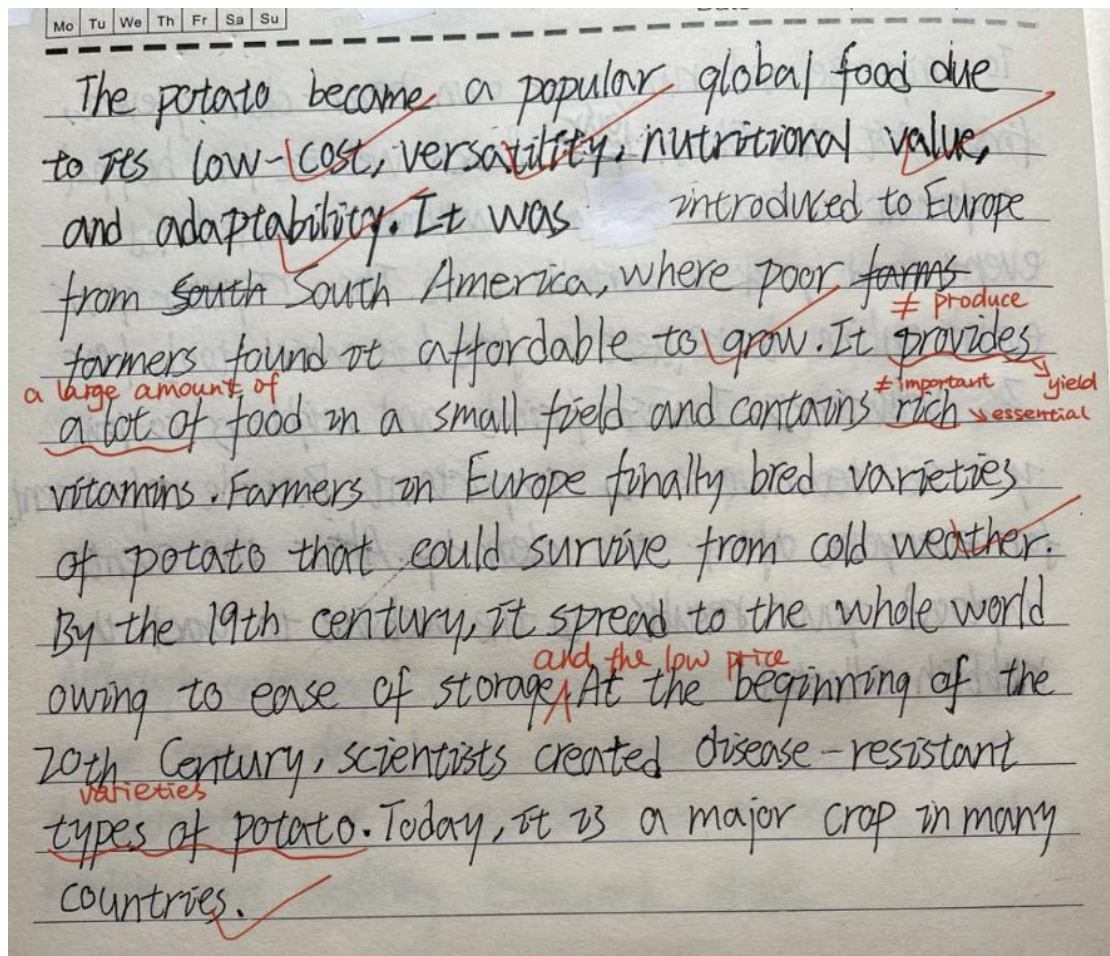 Mo Tu We Th Fr Sa Su
The potato became a popular global food due
to its low-cost, versatility, nutritional value,
and adaptability. It was introduced to Europe
from South South America, where poor farms
≠ produce
farmers found it affordable to grow. It provides
a large amount of ≠ important yield
a lot of food in a small field and contains rich essential
vitamins. Farmers in Europe finally bred varieties
of potato that could survive from cold weather.
By the 19th century, it spread to the whole world
and the low price
owing to ease of storage. At the beginning of the
20th Century, scientists created disease-resistant
varieties
types of potato. Today, it is a major crop in many
countries.